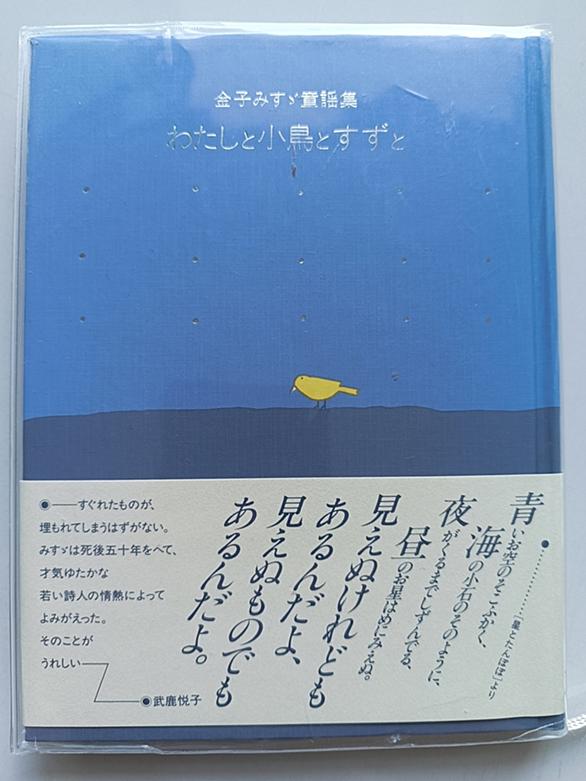 金子みすゞ童謡集
わたしと小鳥とすずと
青いお空のそこふかく、
海の小石のそのように、
夜がくるまでしずんでる、
昼のお星はめにみえぬ。
見えぬけれども
あるんだよ、
見えぬものでも
あるんだよ。
「星とたんぽぽ」より
すぐれたものが、
埋もれてしまうはずがない。
みすゞは死後五十年をへて、
才気ゆたかな
若い詩人の情熱によって
よみがえった。
そのことが
うれしい
武鹿悦子